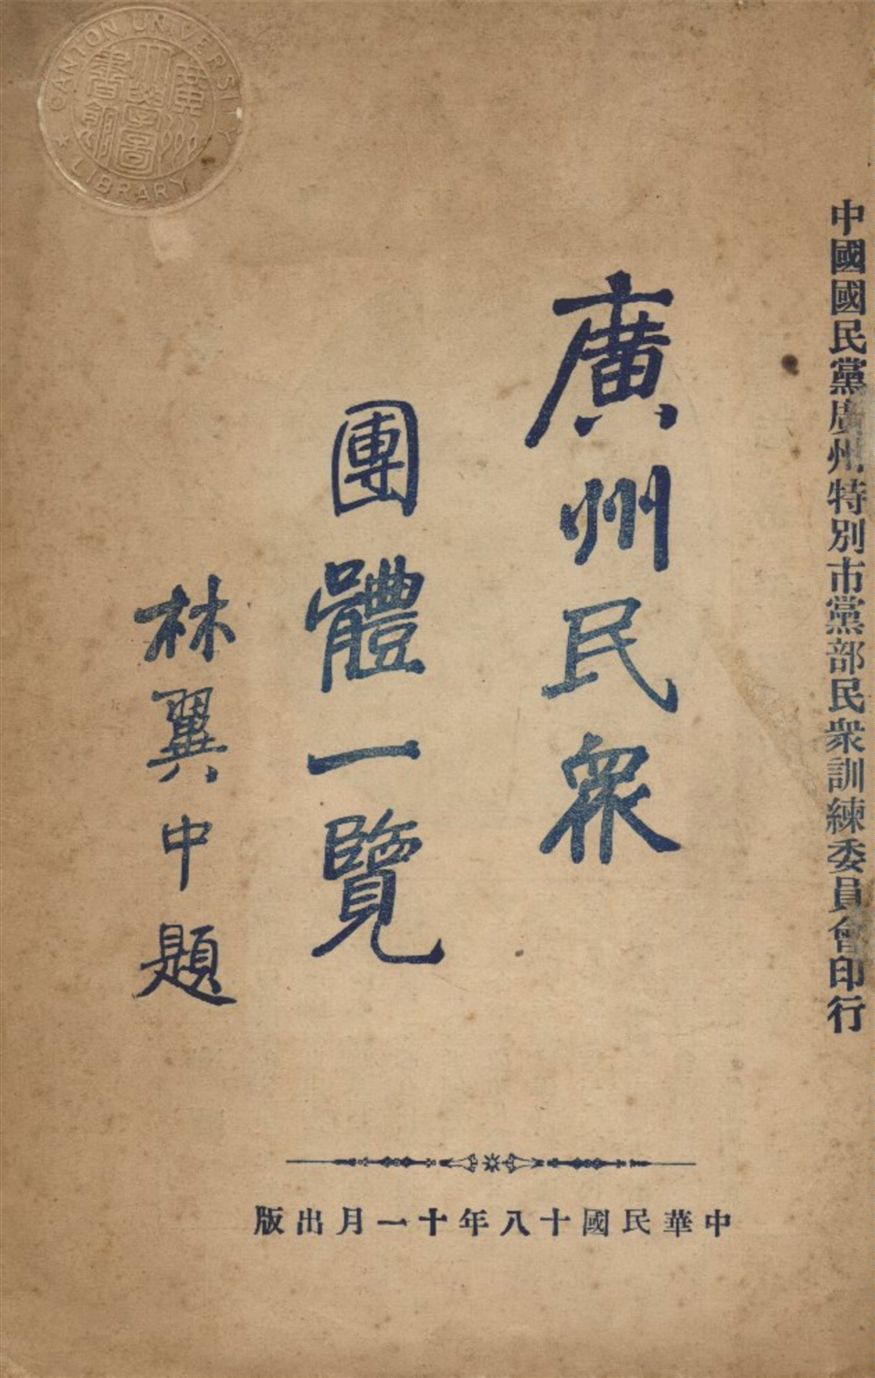 中國國民黨廣州特別市黨部民衆訓練委員會印行
廣州民衆
團體一覽
林翼中題
中華民國十八年十一月出版
CANTON UNIVERSITY
LIBRARY
廣州
大學圖
書館